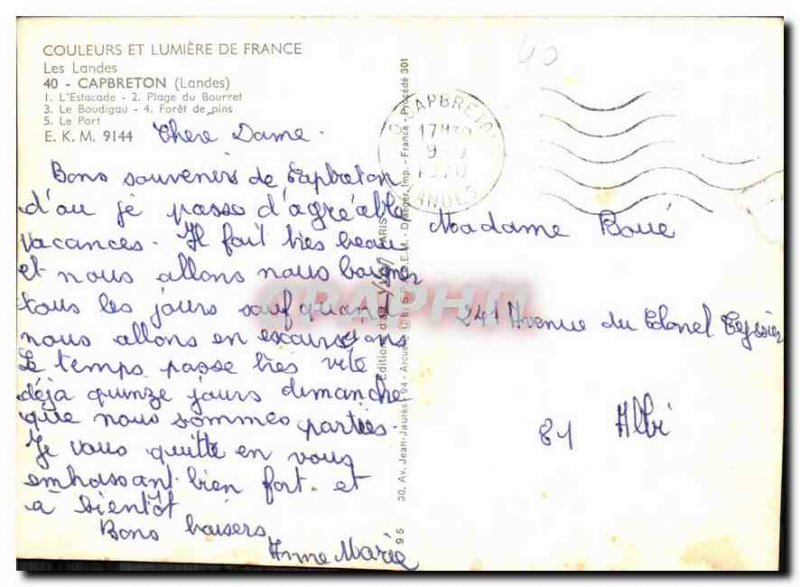 COULEURS ET LUMIÈRE DE FRANCE
Les Landes
40 - CAPBRETON (Landes)
1. L'Estacade - 2. Plage du Bourret
3. Le Boudigau - 4. Forêt de pins
5. Le Port
E. K. M. 9144
Chere Dame.
Bons souvenirs de Capbreton
d'au je passe d'agréable
vacances. Il fait très beau
et nous allons nous baigner
tous les jours sauf quand
nous allons en excursions
Le temps passe très vite
déja quinze jours dimanche
que nous sommes parties.
Je vous quitte en vous
embassant bien fort. et
à bientôt
Bons baisers
Anne Marie
30, Av. Jean-Jaurès, 94 - Arcueil
Imp. - France - Procédé 301
95
40
CAPBRETON
17H30
1970
LANDES
Madame Boué
241 Avenue du Colonel Teyssier
81 Albi
CPAPHIL